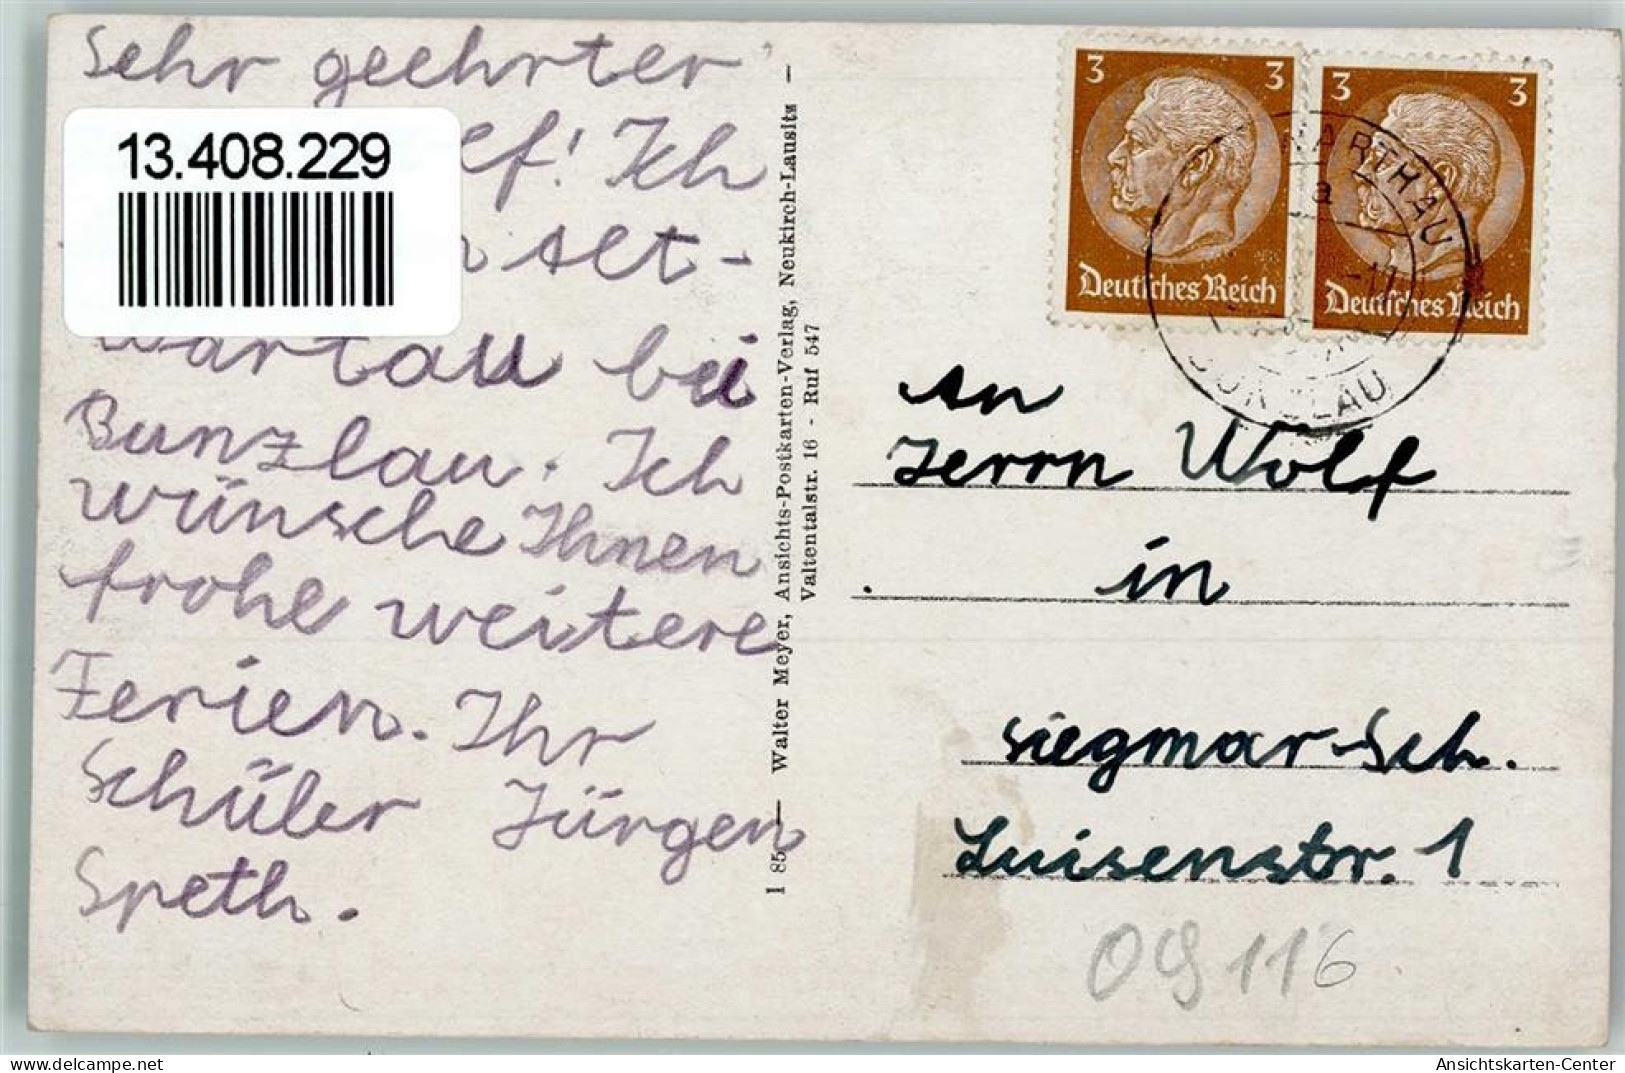 Sehr geehrter
13.408.229
lf! Ich
Alt-
wartau bei
Bunzlau. Ich
wünsche Ihnen
frohe weitere
Ferien. Ihr
Schüler Jürgen
Speth.
1 85 — Walter Meyer, Ansichts-Postkarten-Verlag, Neukirch-Lausitz —
Valtentalstr. 16 - Ruf 547
3 3
Deutsches Reich
3 3
Deutsches Reich
WARTHAU
a
BUNZLAU
An
Herrn Wolf
in
Siegmar-Sch.
Luisenstr. 1
09116
Ansichtskarten-Center